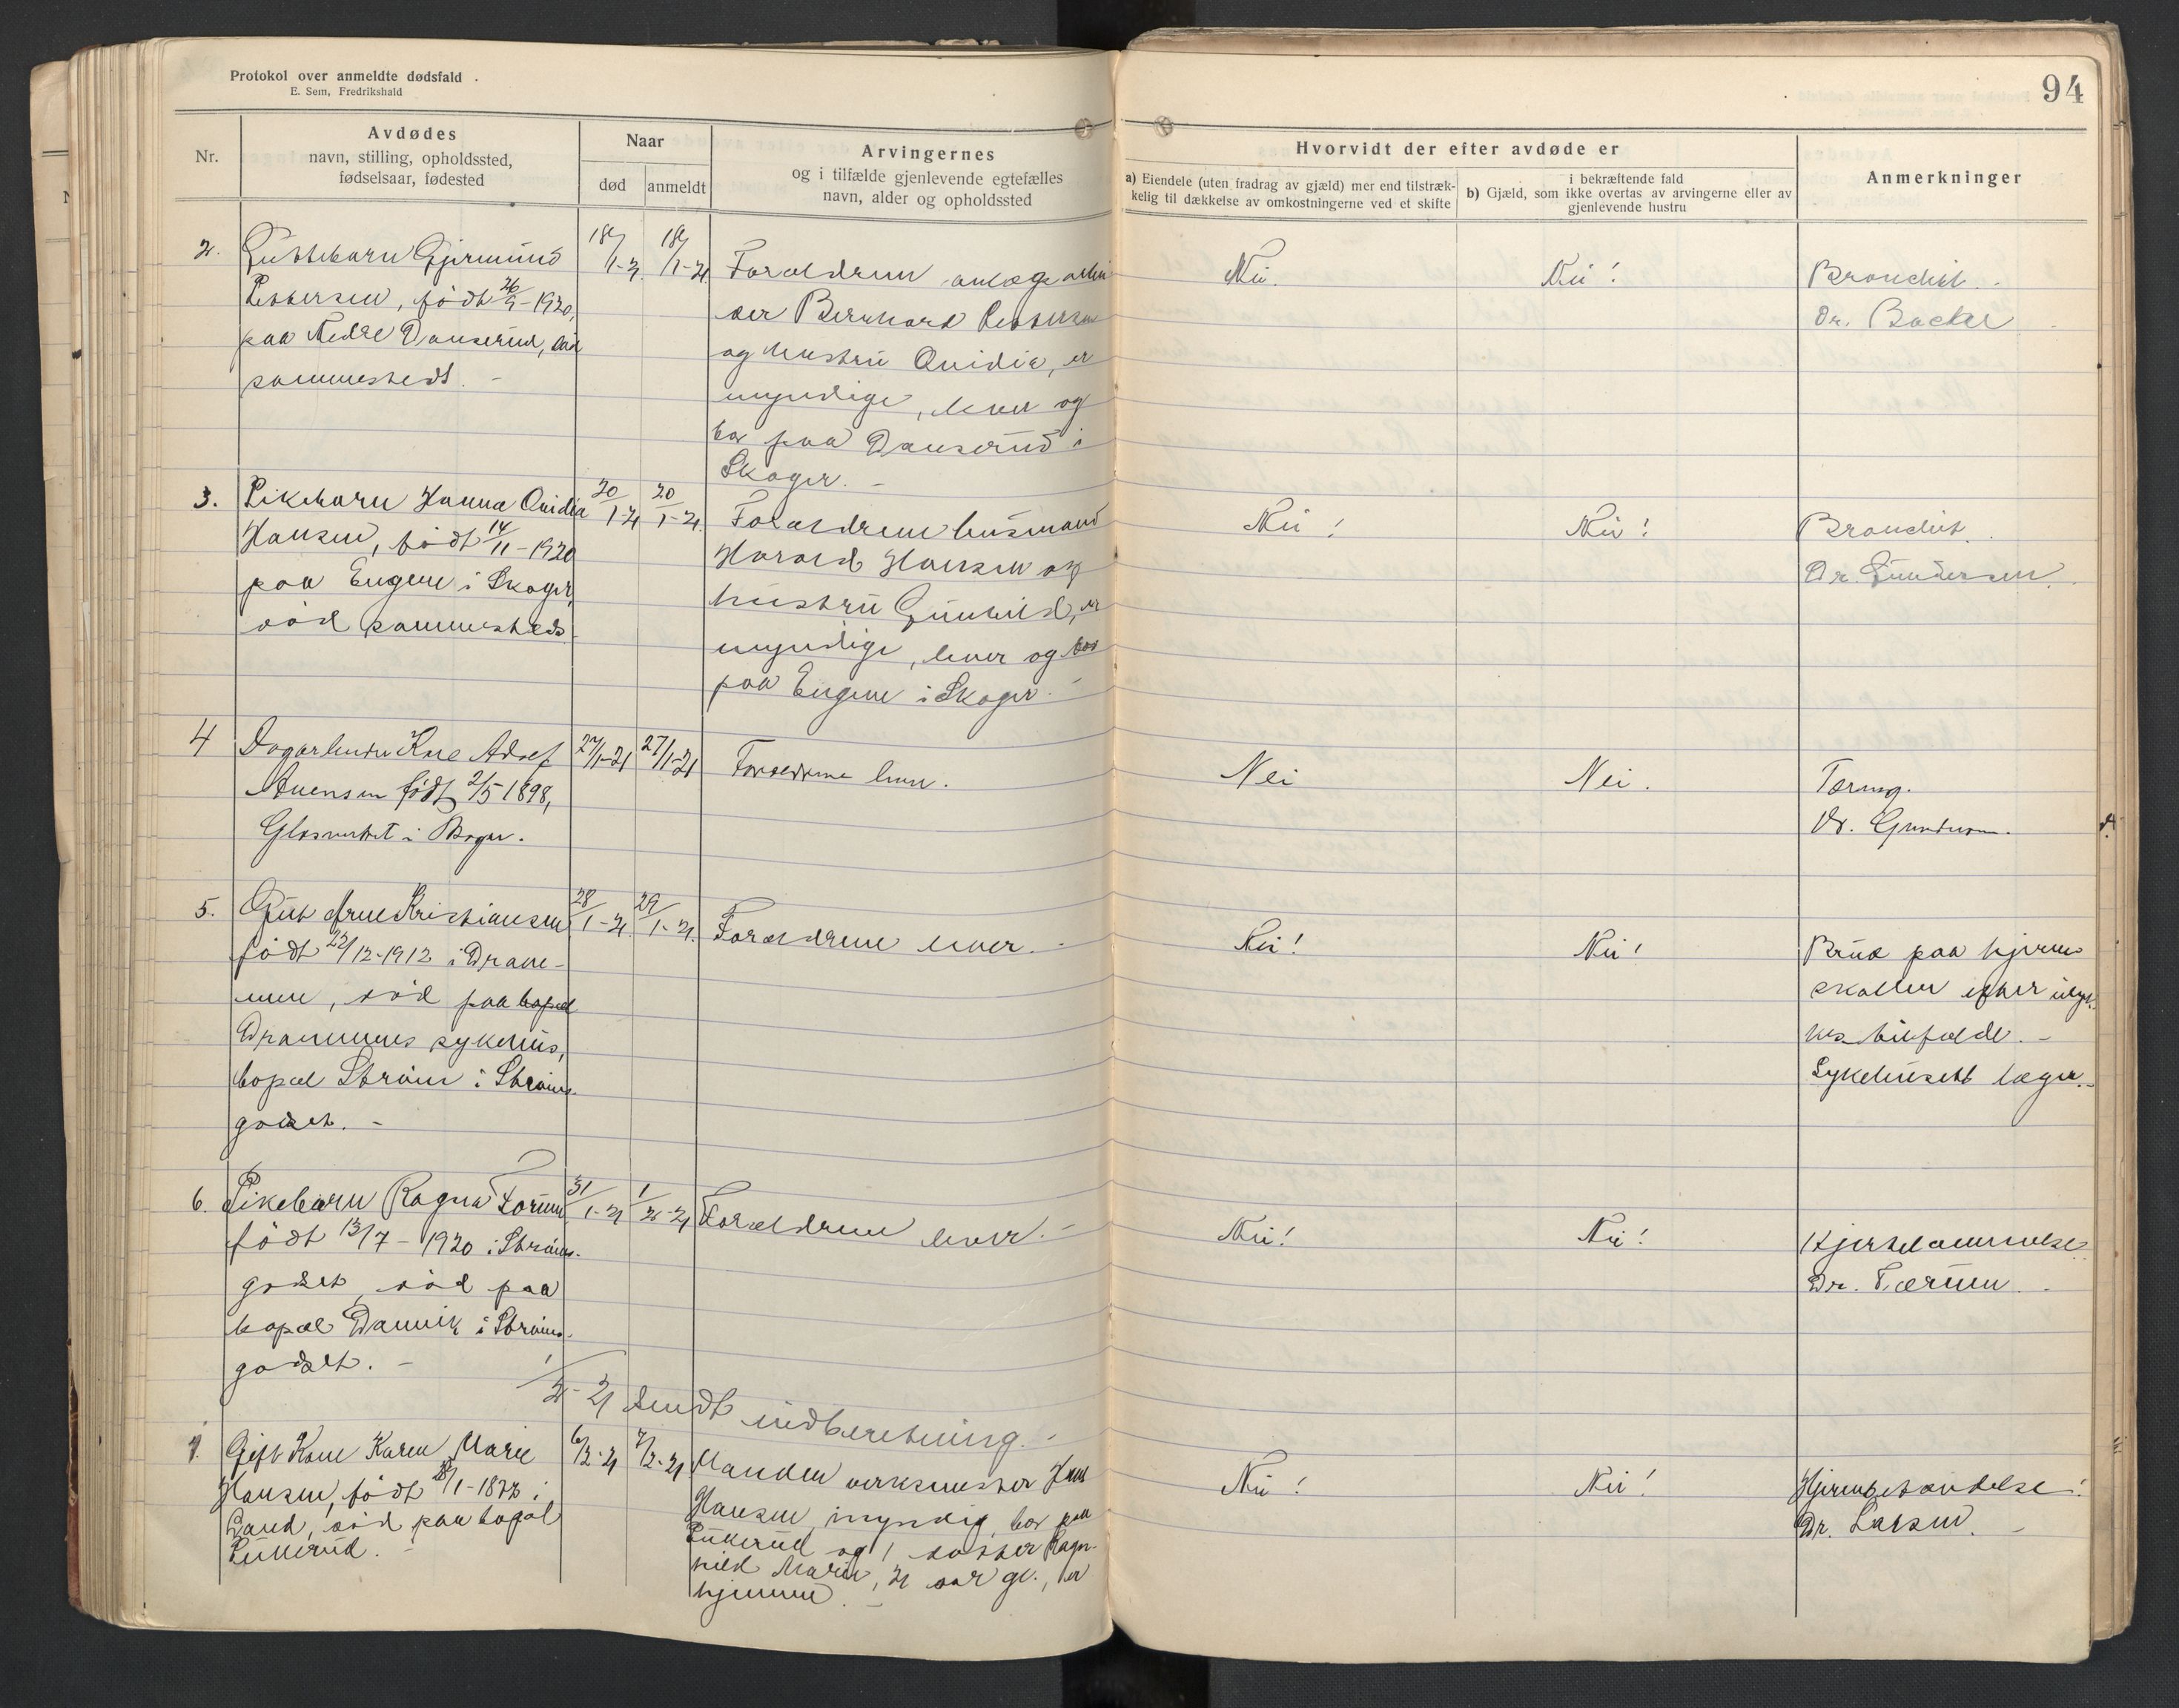 Protokol over anmeldte dødsfald
E. Sem, Fredrikshald
94
Nr.
Avdødes
navn, stilling, opholdssted,
fødselsaar, fødested
Naar
død
anmeldt
Arvingernes
og i tilfælde gjenlevende egtefælles
navn, alder og opholdssted
Hvorvidt der efter avdøde er
a) Eiendele (uten fradrag av gjæld) mer end tilstræk-
kelig til dækkelse av omkostningerne ved et skifte
i bekræftende fald
b) Gjæld, som ikke overtas av arvingerne eller av
gjenlevende hustru
Anmerkninger
2.
Guttebarn Gjermund
Pettersen, født 26/9-1920,
paa Nedre Danserud, død
sammesteds. -
18/1-21.
18/1-21.
Forældrene anlægsarbei
der Bernhard Pettersen
og hustru Ovidia, er
myndige, lever og
bor paa Danserud i
Skoger. -
Nei.
Nei!
Bronchit.
Dr. Backer
3.
Pikebarn Hanna Ovidia
Hansen, født 14/11-1920
paa Eugene i Skoger,
død sammesteds.
20/1-21
20/1-21.
Forældrene husmand
Harald Hansen og
hustru Gunhild, er
myndige, lever og bor
paa Eugene i Skoger. -
Nei!
Nei!
Bronchit.
Dr. Gundersen.
4
Dagarbeider Kåre Adolf
født 2/5 1898,
Glasverket i Skoger.
27/1-21
27/1-21
Forældrene lever.
Nei
Nei.
Tæring.
Dr. Gundersen.
5.
Gut Arne Kristiansen
født 22/12-1912 i Dram-
men, død paa bopæl
Drammens sykehus,
bopæl Strøm i Strøms-
godset. -
28/1-21.
29/1-21.
Forældrene lever. -
Nei!
Nei!
Brud paa hjerne
skallen efter ulyk-
kestilfælde. -
Sykehusets læger. -
6.
Pikebarn Ragna
født 13/7-1920 i Strøms-
godset, død paa
bopæl Danvik i Strøms-
godset. -
31/1-21
1/2-21
Forældrene lever. -
Nei!
Nei!
Kjertelbetændelse
Dr.
1/2-21 Sendt indberetning. -
7.
Gift Kone Karen Marie
Hansen, født
Land, død paa bopæl
6/2-21
7/2-21
Manden verksmester
Hansen, myndig, bor paa
og 1 datter Ragn-
hild Marie, 21 aar gl., er
hjemme. -
Nei!
Nei!
Hjernebetændelse!
Dr. Larsen. -